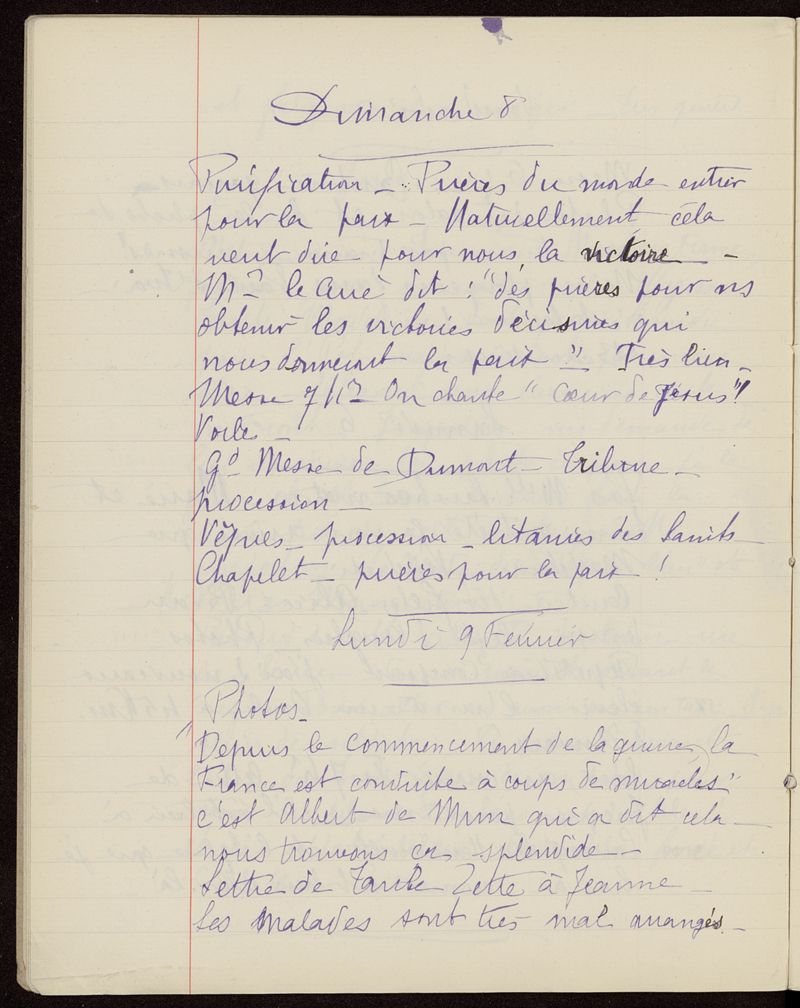 Dimanche 8
Purification - Prières du monde entier
pour la paix - Naturellement cela
veut dire pour nous la victoire -
Mr le Curé dit : "des prières pour ns
obtenir les victoires décisives qui
nous donneront la paix" Très bien -
Messe 7h 1/2 On chante "Coeur de Jésus"!
Voile -
Gd Messe de Dumont - Tribune -
procession -
Vêpres - procession - litanies des Saints
Chapelet - prières pour la paix !
Lundi 9 Février
Photos -
"Depuis le commencement de la guerre, la
France est conduite à coups de miracles"
c'est Albert de Mun qui a dit cela -
nous trouvons ça splendide -
Lettre de Tante Zette à Jeanne -
Les malades sont très mal arrangés -